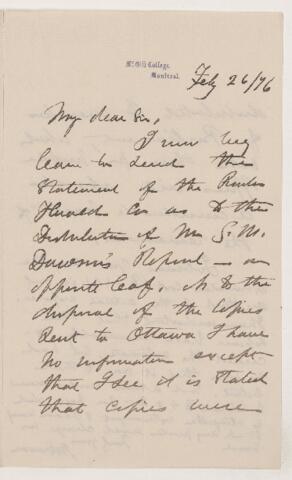 McGill College,
Montreal.
Feby 26/76
My dear Sir,
I now beg
leave to send the
Statement of the
Herald Co as to the
Distribution of Mr G. M.
Dawson's Report – on
opposite leaf. As to the
disposal of the Copies
sent to Ottawa I have
no information except
that I see it is stated
that copies were